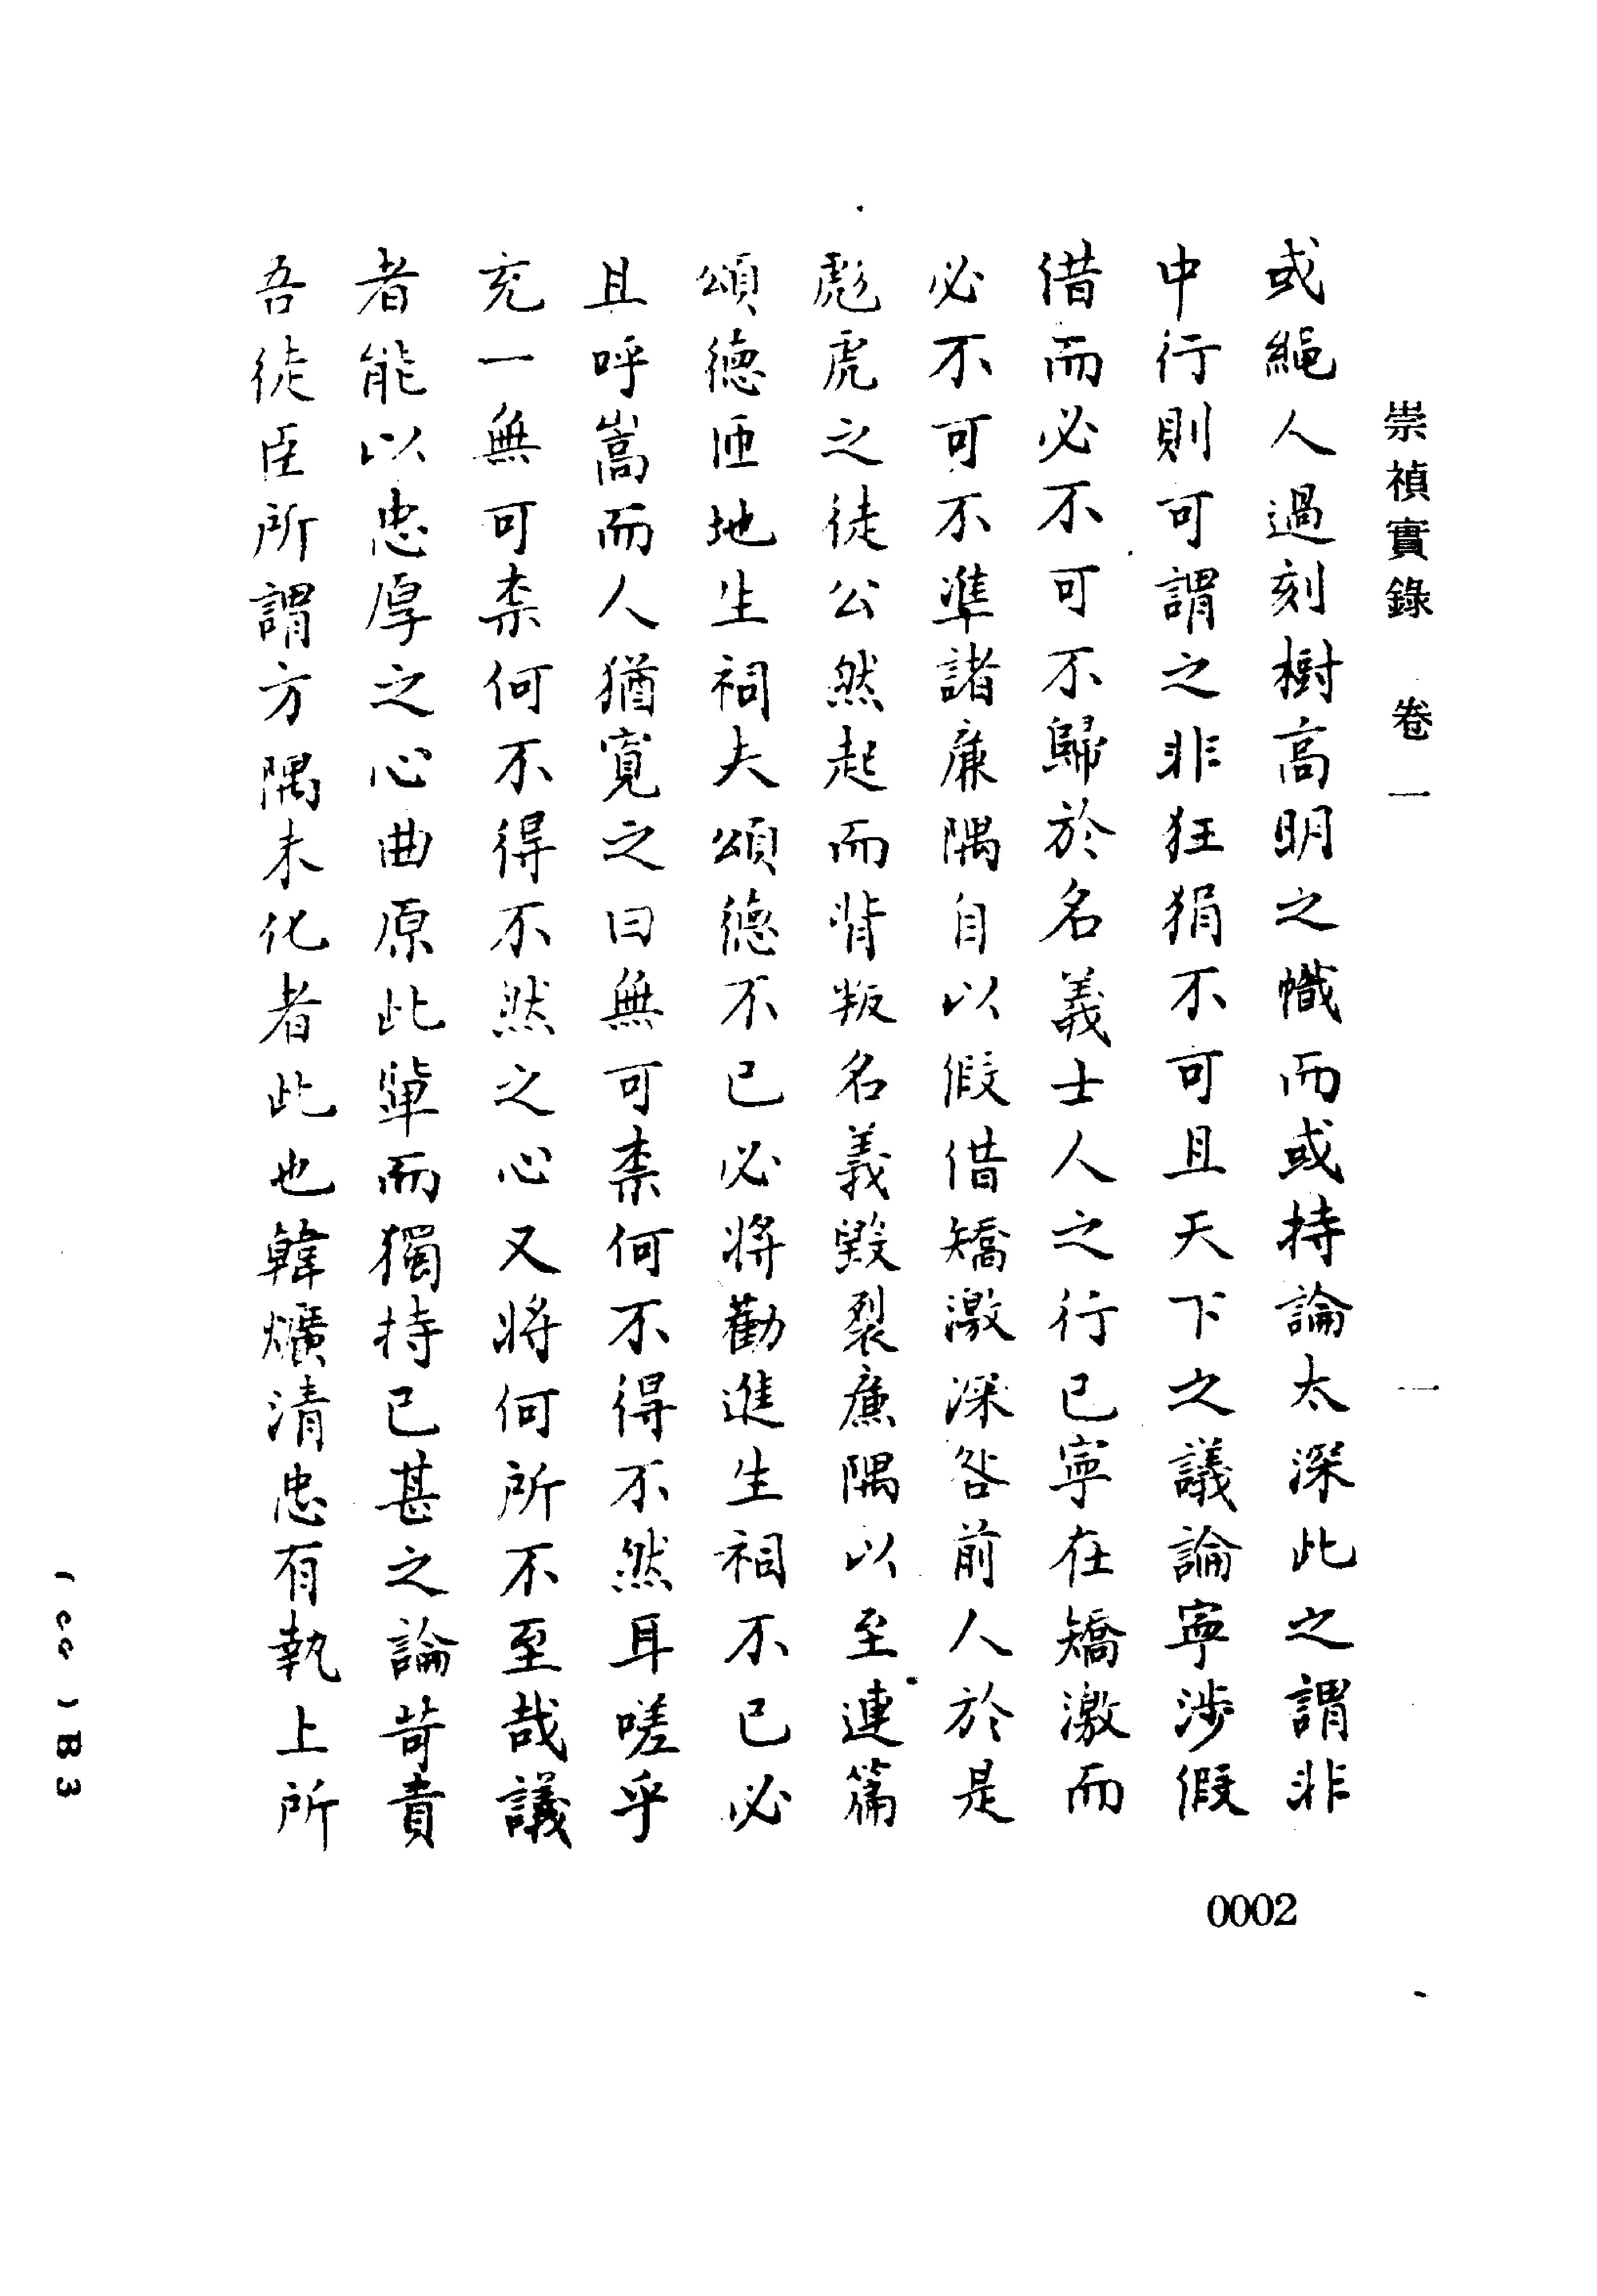 崇禎實錄 卷一 一
或繩人過刻樹高明之幟而或持論太深此之謂非
中行則可謂之非狂狷不可且天下之議論寧涉假
借而必不可不歸於名義士人之行已寧在矯激而
必不可不準諸廉隅自以假借矯激深咎前人於是
彪虎之徒公然起而背叛名義毀裂廉隅以至連篇
頌德匝地生祠夫頌德不已必將勸進生祠不已必
且呼嵩而人猶寬之曰無可柰何不得不然耳嗟乎
充一無可柰何不得不然之心又將何所不至哉議
者能以忠厚之心曲原此輩而獨持已甚之論苛責
吾徒臣所謂方隅未化者此也韓爌清忠有執上所
0002
(cc)B3